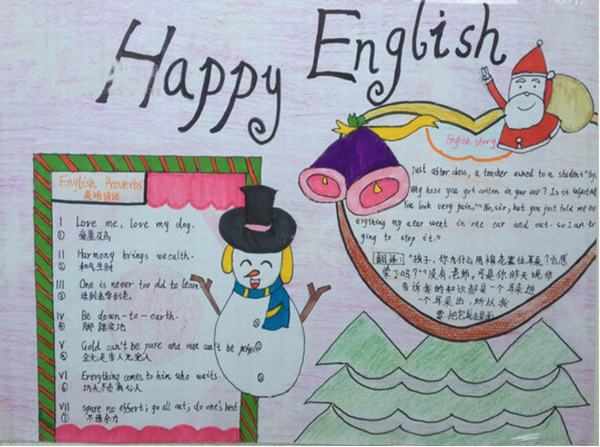 Happy English
English Proverbs
英语谚语
I Love me, love my dog.
① 爱屋及乌
II Harmony brings wealth.
② 和气生财
III One is never too old to learn
③ 活到老学到老
IV Be down-to-earth.
④ 脚踏实地
V Gold can't be pure and man can't be perfect
⑤ 金无足赤人无完人
VI Everything comes to him who waits
⑥ 功夫不负有心人
VII spare no effort; go all out; do one's best
⑦ 不遗余力
English story
Just after class, a teacher asked to a student "
why have you got cotton in your ear? Is it infected
"No, sir, but you just told me
anything my ear went in one ear and out. so I am
ing to stop it."
翻译: "孩子,你为什么用棉花塞住耳朵?也感
染了吗?""没有,老师,可是你昨天说你
告诉我的知识都是一个耳朵进
一个耳朵出,所以我
要把它